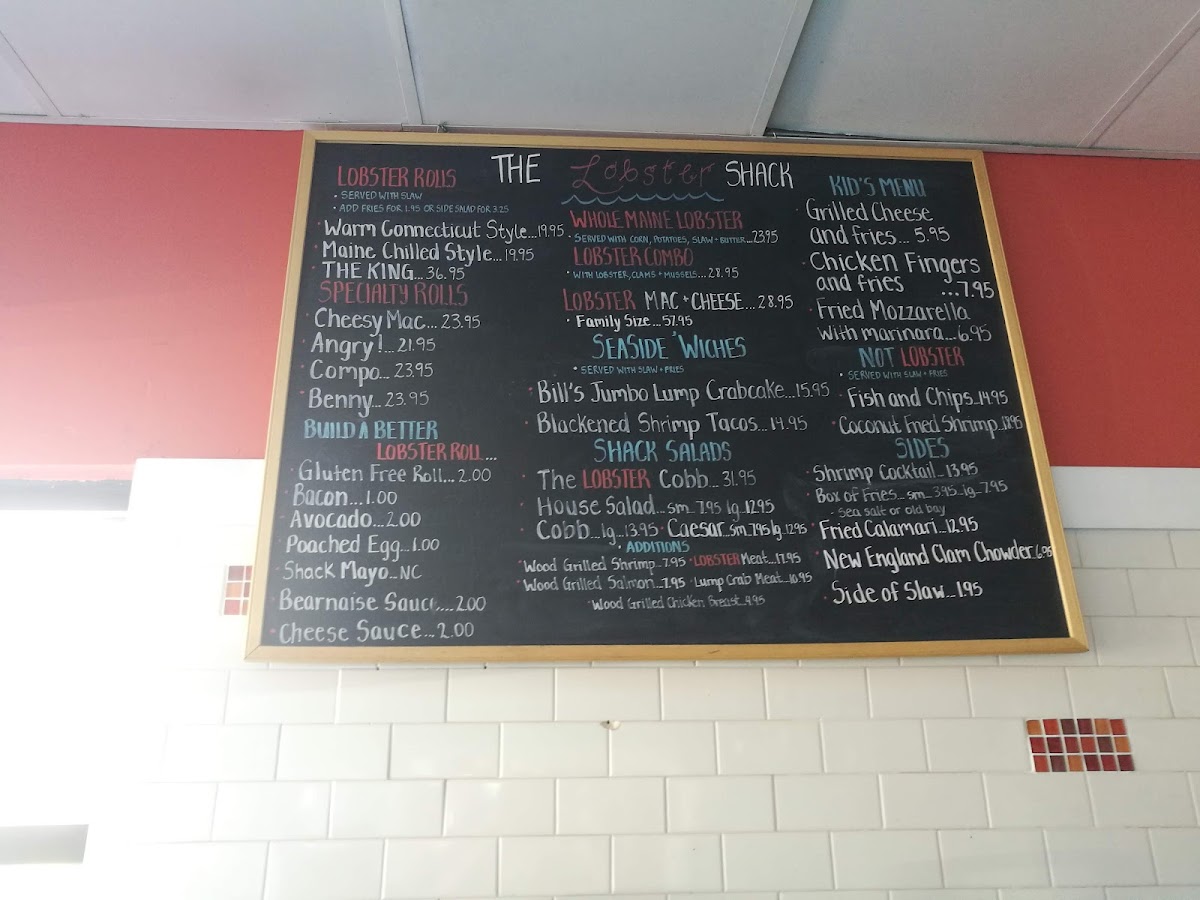 THE Lobster SHACK
LOBSTER ROLLS
• SERVED WITH SLAW
• ADD FRIES FOR 1.95 OR SIDE SALAD FOR 3.25
• Warm Connecticut Style...19.95
• Maine Chilled Style...19.95
• THE KING...36.95
SPECIALTY ROLLS
• Cheesy Mac...23.95
• Angry!...21.95
• Compo...23.95
• Benny...23.95
BUILD A BETTER
LOBSTER ROLL...
• Gluten Free Roll...2.00
• Bacon...1.00
• Avocado...2.00
• Poached Egg...1.00
• Shack Mayo...NC
• Bearnaise Sauce....2.00
• Cheese Sauce...2.00
WHOLE MAINE LOBSTER
• SERVED WITH CORN, POTATOES, SLAW + BUTTER...23.95
LOBSTER COMBO
• WITH LOBSTER, CLAMS + MUSSELS...28.95
LOBSTER MAC + CHEESE...28.95
• Family Size...57.95
SEASIDE 'WICHES
• SERVED WITH SLAW + FRIES
• Bill's Jumbo Lump Crabcake...15.95
• Blackened Shrimp Tacos...14.95
SHACK SALADS
• The LOBSTER Cobb...31.95
• House Salad...sm...7.95 lg...12.95
• Cobb...lg...13.95 • Caesar...sm...7.95 lg...12.95
• ADDITIONS
• Wood Grilled Shrimp...7.95 • LOBSTER Meat...17.95
• Wood Grilled Salmon...7.95 • Lump Crab Meat...10.95
• Wood Grilled Chicken Breast...4.95
KID'S MENU
• Grilled Cheese
and fries... 5.95
• Chicken Fingers
and fries ...7.95
• Fried Mozzarella
with marinara...6.95
NOT LOBSTER
• SERVED WITH SLAW + FRIES
• Fish and Chips...14.95
• Coconut Fried Shrimp...
SIDES
• Shrimp Cocktail...13.95
• Box of Fries...sm...3.95...lg...7.95
- sea salt or old bay
• Fried Calamari...12.95
• New England Clam Chowder...6.95
• Side of Slaw...1.95